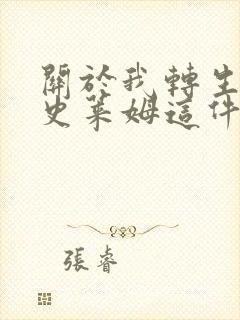 關於我轉生
史萊姆這件
張睿